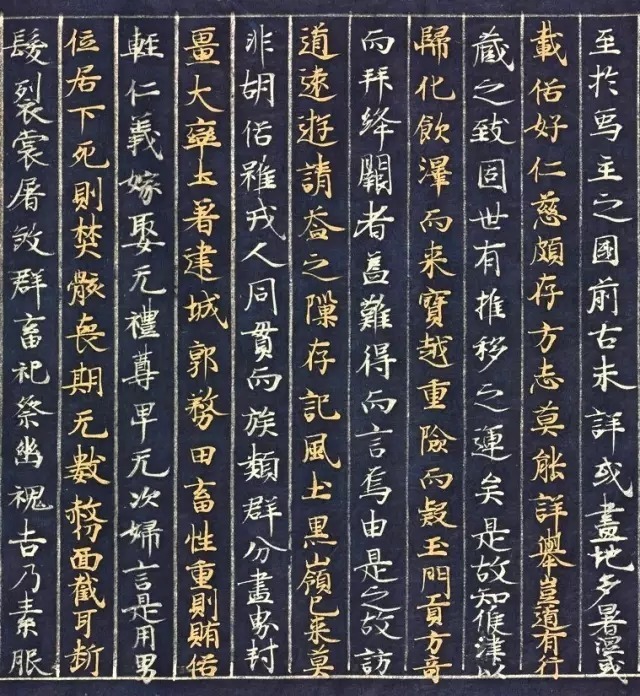 至於馬主之國前古未詳或盡地多暑濕或
載俗好仁慈頗存方志莫能詳舉豈道有行
藏之致固世有推移之運矣是故知候律以
歸化飲澤而來賓越重險而款玉門貢方奇
而拜絳闕者蓋難得而言焉由是之故訪
道遠遊請益之隙存記風土黑嶺已來莫
非胡俗雖戎人同貫而族類群分畫界封
畺大率土著建城郭務田畜性重則賄俗
輕仁義嫁娶无禮尊卑无次婦言是用男
位居下死則焚骸喪期无數剺面截耳斷
髮裂裳屠殺群畜祀祭幽魂吉乃素服